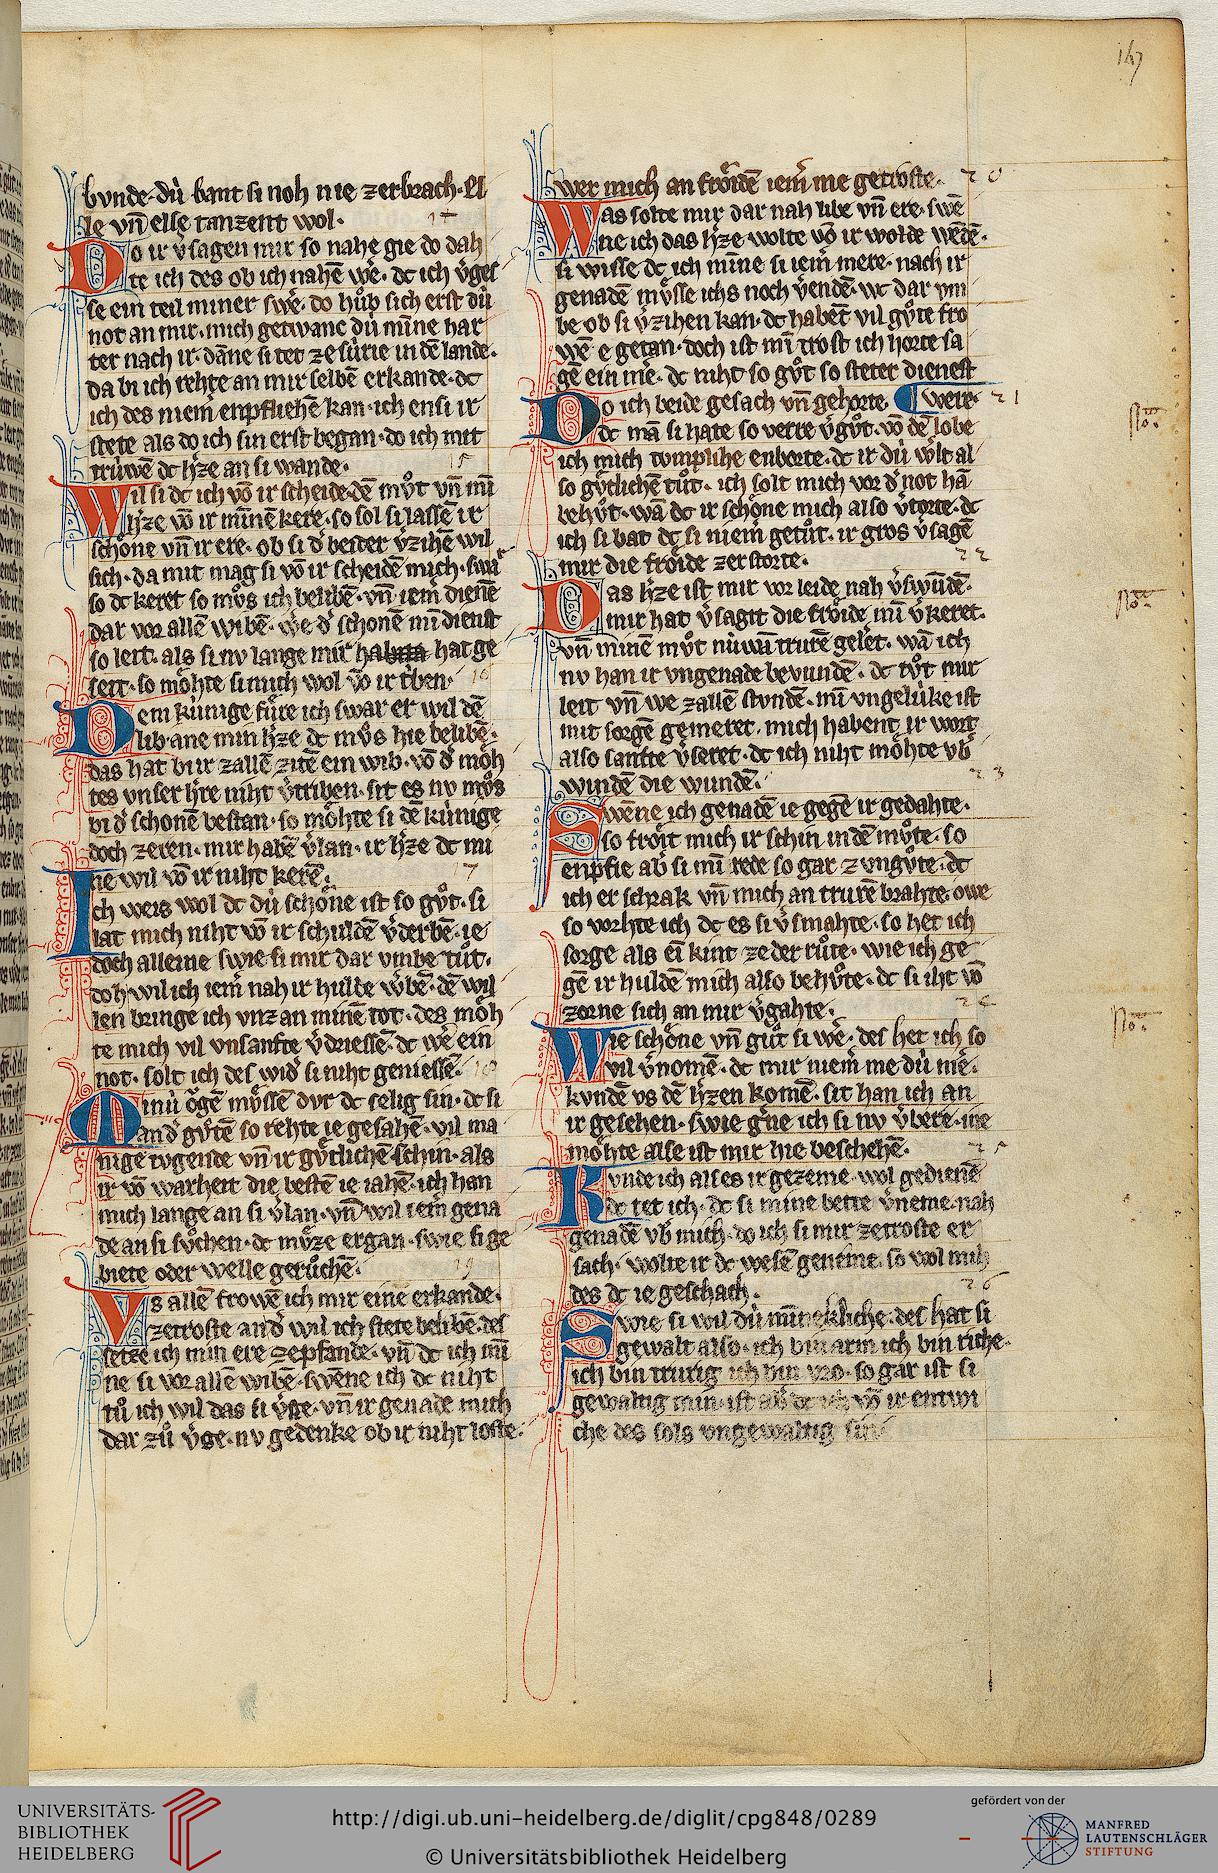 147
bunde· dú bant si noh nie zerbrach· El
le vn̄ else tanzent wol· 14
Do ir v̾sagen mir so nahe gie do dah
te ich des ob ich nahē we̾· dc ich v̾ges
se ein teil miner swe̾· do hůb sich erst dú
not an mir· mich getwanc dú mı̄ne har
ter nach ir· dāne si tet ze súrie in dē lande·
da bi ich rehte an mir selbē erkande· dc
ich des niem̾ enpfliehē kan· ich ensi ir
stete als do ich sin erst began· do ich mit
trúwē dc h̾ze an si wande· 15
Wil si dc ich vō ir scheide· dē můt vn̄ mı̄
h̾ze vō ir mı̄nē kere· so sol si lassē ir
schöne vn̄ ir ere· ob si d̾ beider v̾zihē wil
sich· da mit mag si vō ir scheidē mich· swar
so dc keret so můs ich belibē· vn̄ iem̾ dienē
dar vor allē wibē· we d̾ schonē mı̄ dienst
so leit· als si nv lange mir hat ge
seit· so möhte si mich wol vō ir t̾ben· 16
Dem kúnige fůre ich swar er wil dē
lib· ane min h̾ze dc můs hie belibē·
das hat bi ir zallē zitē ein wib· vō d̾ moh
tes vnser h̾re niht v̾triben· sit es nv můs
bi d̾ schonē bestan· so möhte si dē kúnige
doch zeren· mir habē v̾lan· ir h̾ze dc mi
ne wil vō ir niht kerē· 17
Ich weis wol dc dú schöne ist so gůt· si
lat mich niht vō ir schuldē v̾derbē· ie
doch alleine swie si mir dar vmbe tůt·
doh wil ich iem̾ nah ir hulde w̾bē· dē wil
len bringe ich vnz an minē tot· des möh
te mich vil vnsanfte v̾driessē· dc we̾ ein
not· solt ich des wid̾ si niht geniessē· 18
Minú ögē mússē dur dc selig sin· dc si
and̾ gůtē so rehte ie gesahē· vil ma
nige tvgende vn̄ ir gůtlichē schin· als
ir vō warheit die bestē ie iahē· ich han
mich lange an si v̾lan· vn̄ wil iem̾ gena
de an si sůchen· dc můze ergan· swie si ge
biete oder welle gerůchē· 19
Vs allē frowē ich mir eine erkande·
zetroste and̾ wil ich stete belibē· des
setze ich min ere zepfande· vn̄ dc ich mı̄
ne si vor allē wibē· swene ich dc niht
tů ich wil das si v̾ge· vn̄ ir genade mich
dar zů v̾ge· nv gedenke ob ir niht loste·
wer mich an fröidē iem̾ me getroste· 20
Was solte mir dar nah libe vn̄ ere· swē
ne ich das h̾ze wolte vō ir wolde wēdē·
si wisse dc ich mı̄ne si iem̾ mere· nach ir
genadē můsse ichs noch v̾endē· wc dar vm
be ob si v̾zihen kan· dc habēt vil gůte fro
wē e getan· doch ist mı̄ trost ich horte sa
gē ein me̾· dc niht so gůt so steter dienest
Do ich beide gesach vn̄ gehorte· were· 21
dc mā si hate so verre v̾gůt· vō dē lobe
ich mich tvmplihe enborte· dc ir dú w̾lt al
so gůtlichē tůt· ich solt mich vor d̾ not hā
behůt· wā dc ir schöne mich also v̾torte· dc
ich si bat dc si niem̾ getůt· ir gros v̾sagē
mir die fröide zerstorte· 22
Das h̾ze ist mir vor leide nah v̾swūdē·
mir hat v̾sagit die fröide mı̄ v̾keret·
vn̄ minē můt núwā trurē gele̾t· wā ich
nv han ir vngenade bevundē· dc tůt mir
leit vn̄ we zallē stvndē· mı̄ vngelúke ist
mit sorgē gemeret· mich habent ir wort
also sanfte v̾seret· dc ich niht möhte vb̾
windē die wundē· 23
Swēne ich genadē ie gegē ir gedahte·
so fröit mich ir schin in dē můte· so
enpfie ab̾ si mı̄ rede so gar zvngůte· dc
ich er schrak vn̄ mich an trurē brahte· owe
so vorhte ich dc es si v̾smahte· so het ich
sorge als eı̄ kint ze der růte· wie ich ge
gē ir huldē mich also behůte· dc si iht vō
zorne sich an mir v̾gahte· 24
Wie schöne vn̄ gůt si we̾· des het ich so
vil v̾nomē· dc mir niem̾ me dú me̾·
kvndē vs dē h̾zen komē· sit han ich an
ir gesehen· swie g̾ne ich si nv v̾bere· me
möhte alse ist mir hie beschehē· 25
Kvnde ich alles ir gezeme· wol gedienē
dc tet ich· dc si mine bette v̾neme· nah
genadē vb̾ mich· do ich si mir zetroste er
sach· wolte ir dc wesē geneme· so wol mih
des dc ie geschach· 26
Swie si wil dú mı̄nekliche· des hat si
gewalt also· ich bin arm ich bin riche·
ich bin trurig ich bin vro· so gar ist si
gewaltig min· ist ab̾ dc ich vō ir entwi
che des sols vngewaltig sin
No·
No·
No·
UNIVERSITÄTS-
BIBLIOTHEK
HEIDELBERG
http://digi.ub.uni-heidelberg.de/diglit/cpg848/0289
© Universitätsbibliothek Heidelberg
gefördert von der
MANFRED
LAUTENSCHLÄGER
STIFTUNG